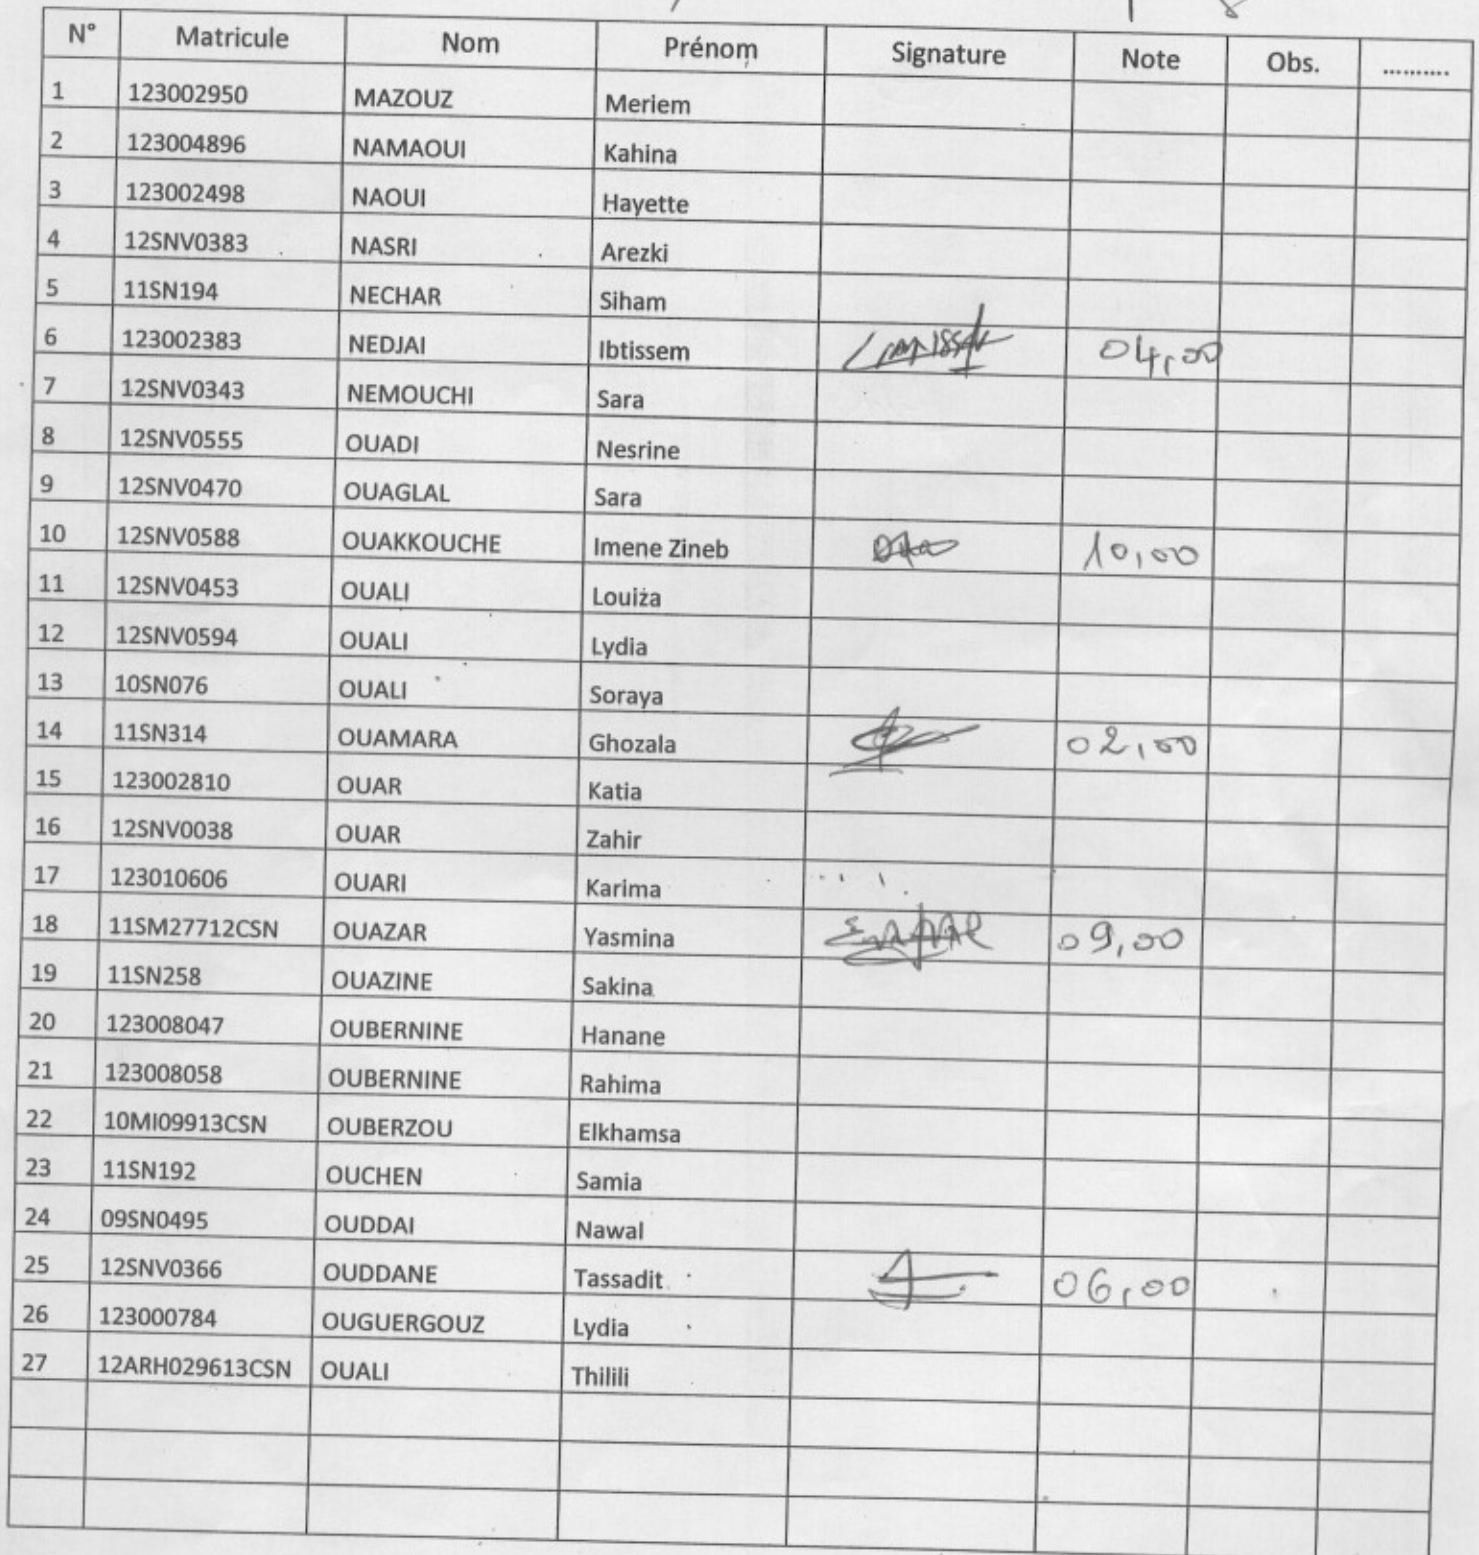 N° Matricule Nom Prénom Signature Note Obs. ..........
1 123002950 MAZOUZ Meriem
2 123004896 NAMAOUI Kahina
3 123002498 NAOUI Hayette
4 12SNV0383 NASRI Arezki
5 11SN194 NECHAR Siham
6 123002383 NEDJAI Ibtissem 04,00
7 12SNV0343 NEMOUCHI Sara
8 12SNV0555 OUADI Nesrine
9 12SNV0470 OUAGLAL Sara
10 12SNV0588 OUAKKOUCHE Imene Zineb 10,00
11 12SNV0453 OUALI Louiza
12 12SNV0594 OUALI Lydia
13 10SN076 OUALI Soraya
14 11SN314 OUAMARA Ghozala 02,00
15 123002810 OUAR Katia
16 12SNV0038 OUAR Zahir
17 123010606 OUARI Karima
18 11SM27712CSN OUAZAR Yasmina 09,00
19 11SN258 OUAZINE Sakina
20 123008047 OUBERNINE Hanane
21 123008058 OUBERNINE Rahima
22 10MI09913CSN OUBERZOU Elkhamsa
23 11SN192 OUCHEN Samia
24 09SN0495 OUDDAI Nawal
25 12SNV0366 OUDDANE Tassadit 06,00
26 123000784 OUGUERGOUZ Lydia
27 12ARH029613CSN OUALI Thilili